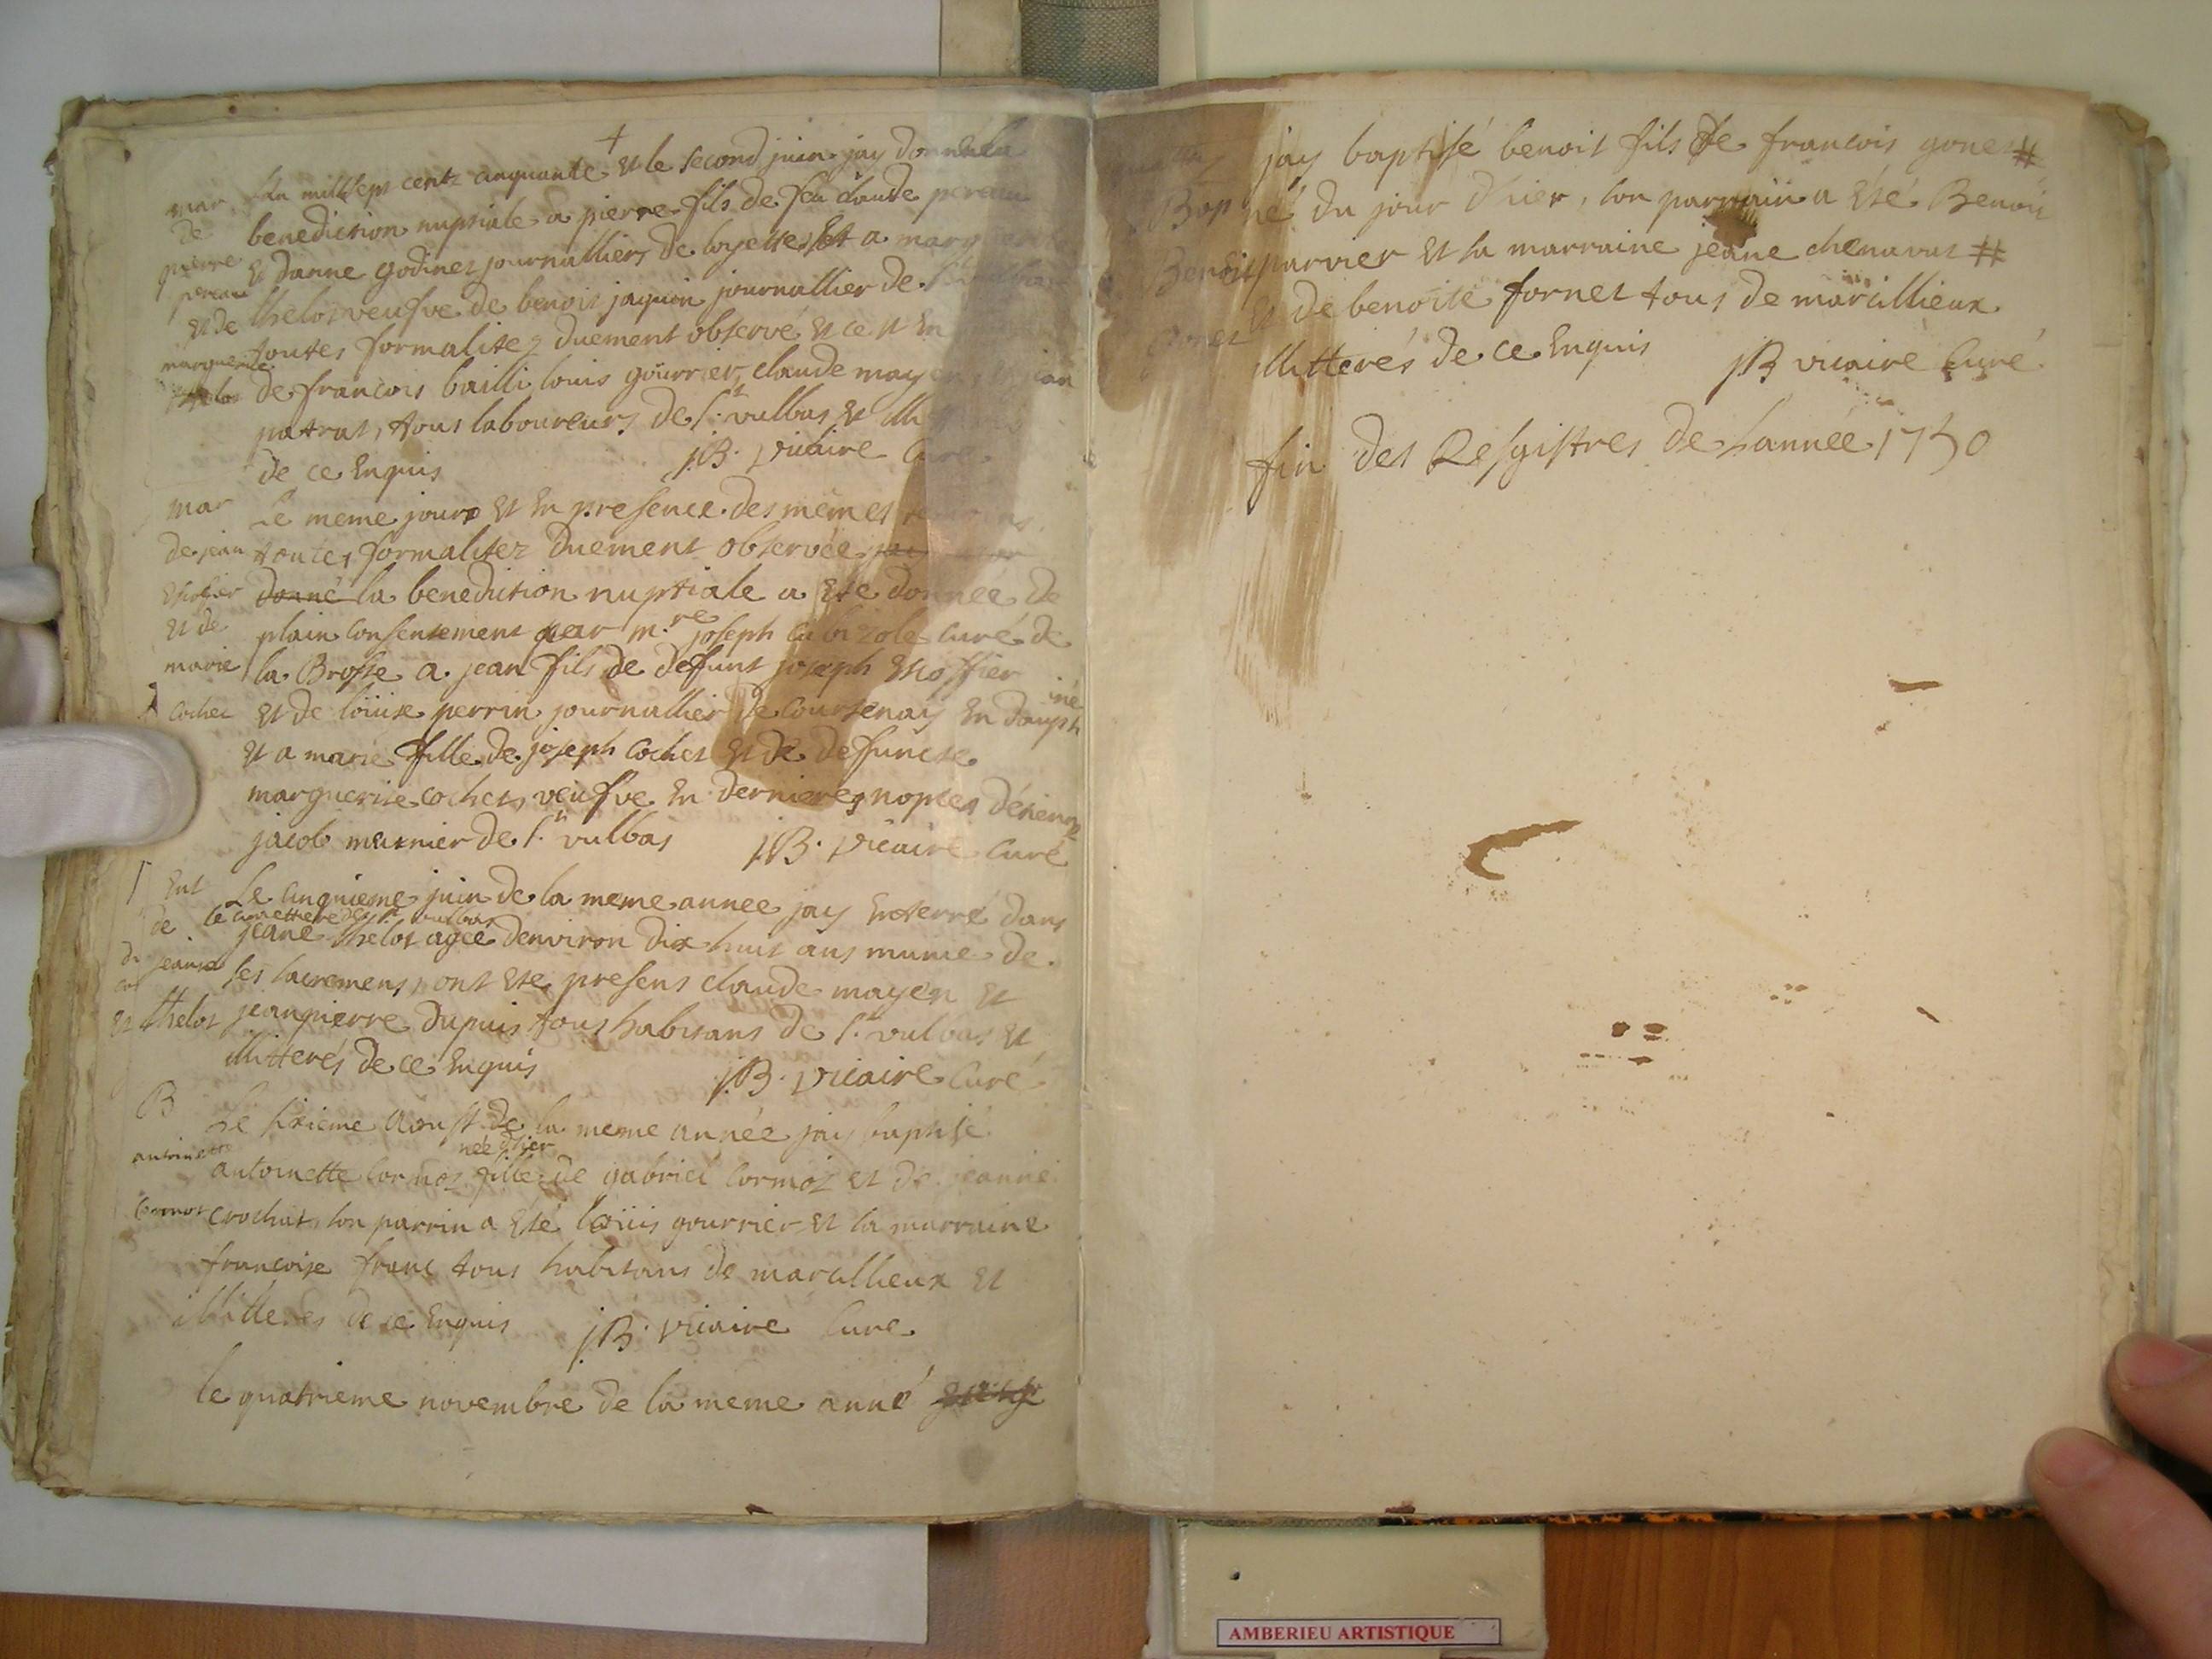 +
mar
de
pierre
pereau
et de
marguerite
thelot
Lan mil sept cents cinquante et le second juin jay donné la
benediction nuptiale a pierre fils de feu claude pereau
et danne godinet journalliers de loyettes et a marguerite
thelot veufve de benoit jaquin journallier de
toutes formalitez duement observé et ce st en
de francois bailli louis gourrier, claude mayen jean
patrat, tous laboureurs de st. vulbas et illi
de ce enquis J.B. vicaire Curé
mar
de jean
et de
marie
cochet
Le meme jour et en presence des memes temoins
toutes formalitez duement observée jay
donné la benediction nuptiale a ete donnée de
plain consentement par m.re joseph curé de
la Brosse a jean fils de deffunt joseph
et de loüise perrin journallier de Courtenay en dauphiné
et a marie fille de joseph cochet et de deffuncte
marguerite cochet, veufve en dernieres nopces détienne
jacob meusnier de st. vulbas J.B. vicaire Curé
Ent
de
jeane
thelot
Le cinquieme juin de la meme annee jay enterré dans
le cimettiere de st. vulbas
jeane thelot agée denviron dix huit ans munie de
ses sacremens, ont ete presens claude mayen et
jeanpierre dupuis tous habitans de st. vulbas et
illitterés de ce enquis J.B. vicaire Curé
B
antoinette
Cormot
Le sixieme Aoust de la meme année jay baptisé
née d'hier
antoinette Cormot fille de gabriel Cormot et de jeanne
crochat, son parrin a eté Loüis gourrier et la marraine
francoise franc tous habitans de marcillieux et
illitterés de ce enquis J.B. vicaire Curé
le quatrieme novembre de la meme anné
Bap
Benoit
gonet
jay baptisé benoit fils de francois gonet #
né du jour d'hier, son parrain a été Benoit
parvier et la marraine jeane chenavat #
# et de benoite fornet tous de marcillieux
illitterés de ce enquis J.B vicaire Curé
fin des Resgistres de l'année 1750
AMBERIEU ARTISTIQUE